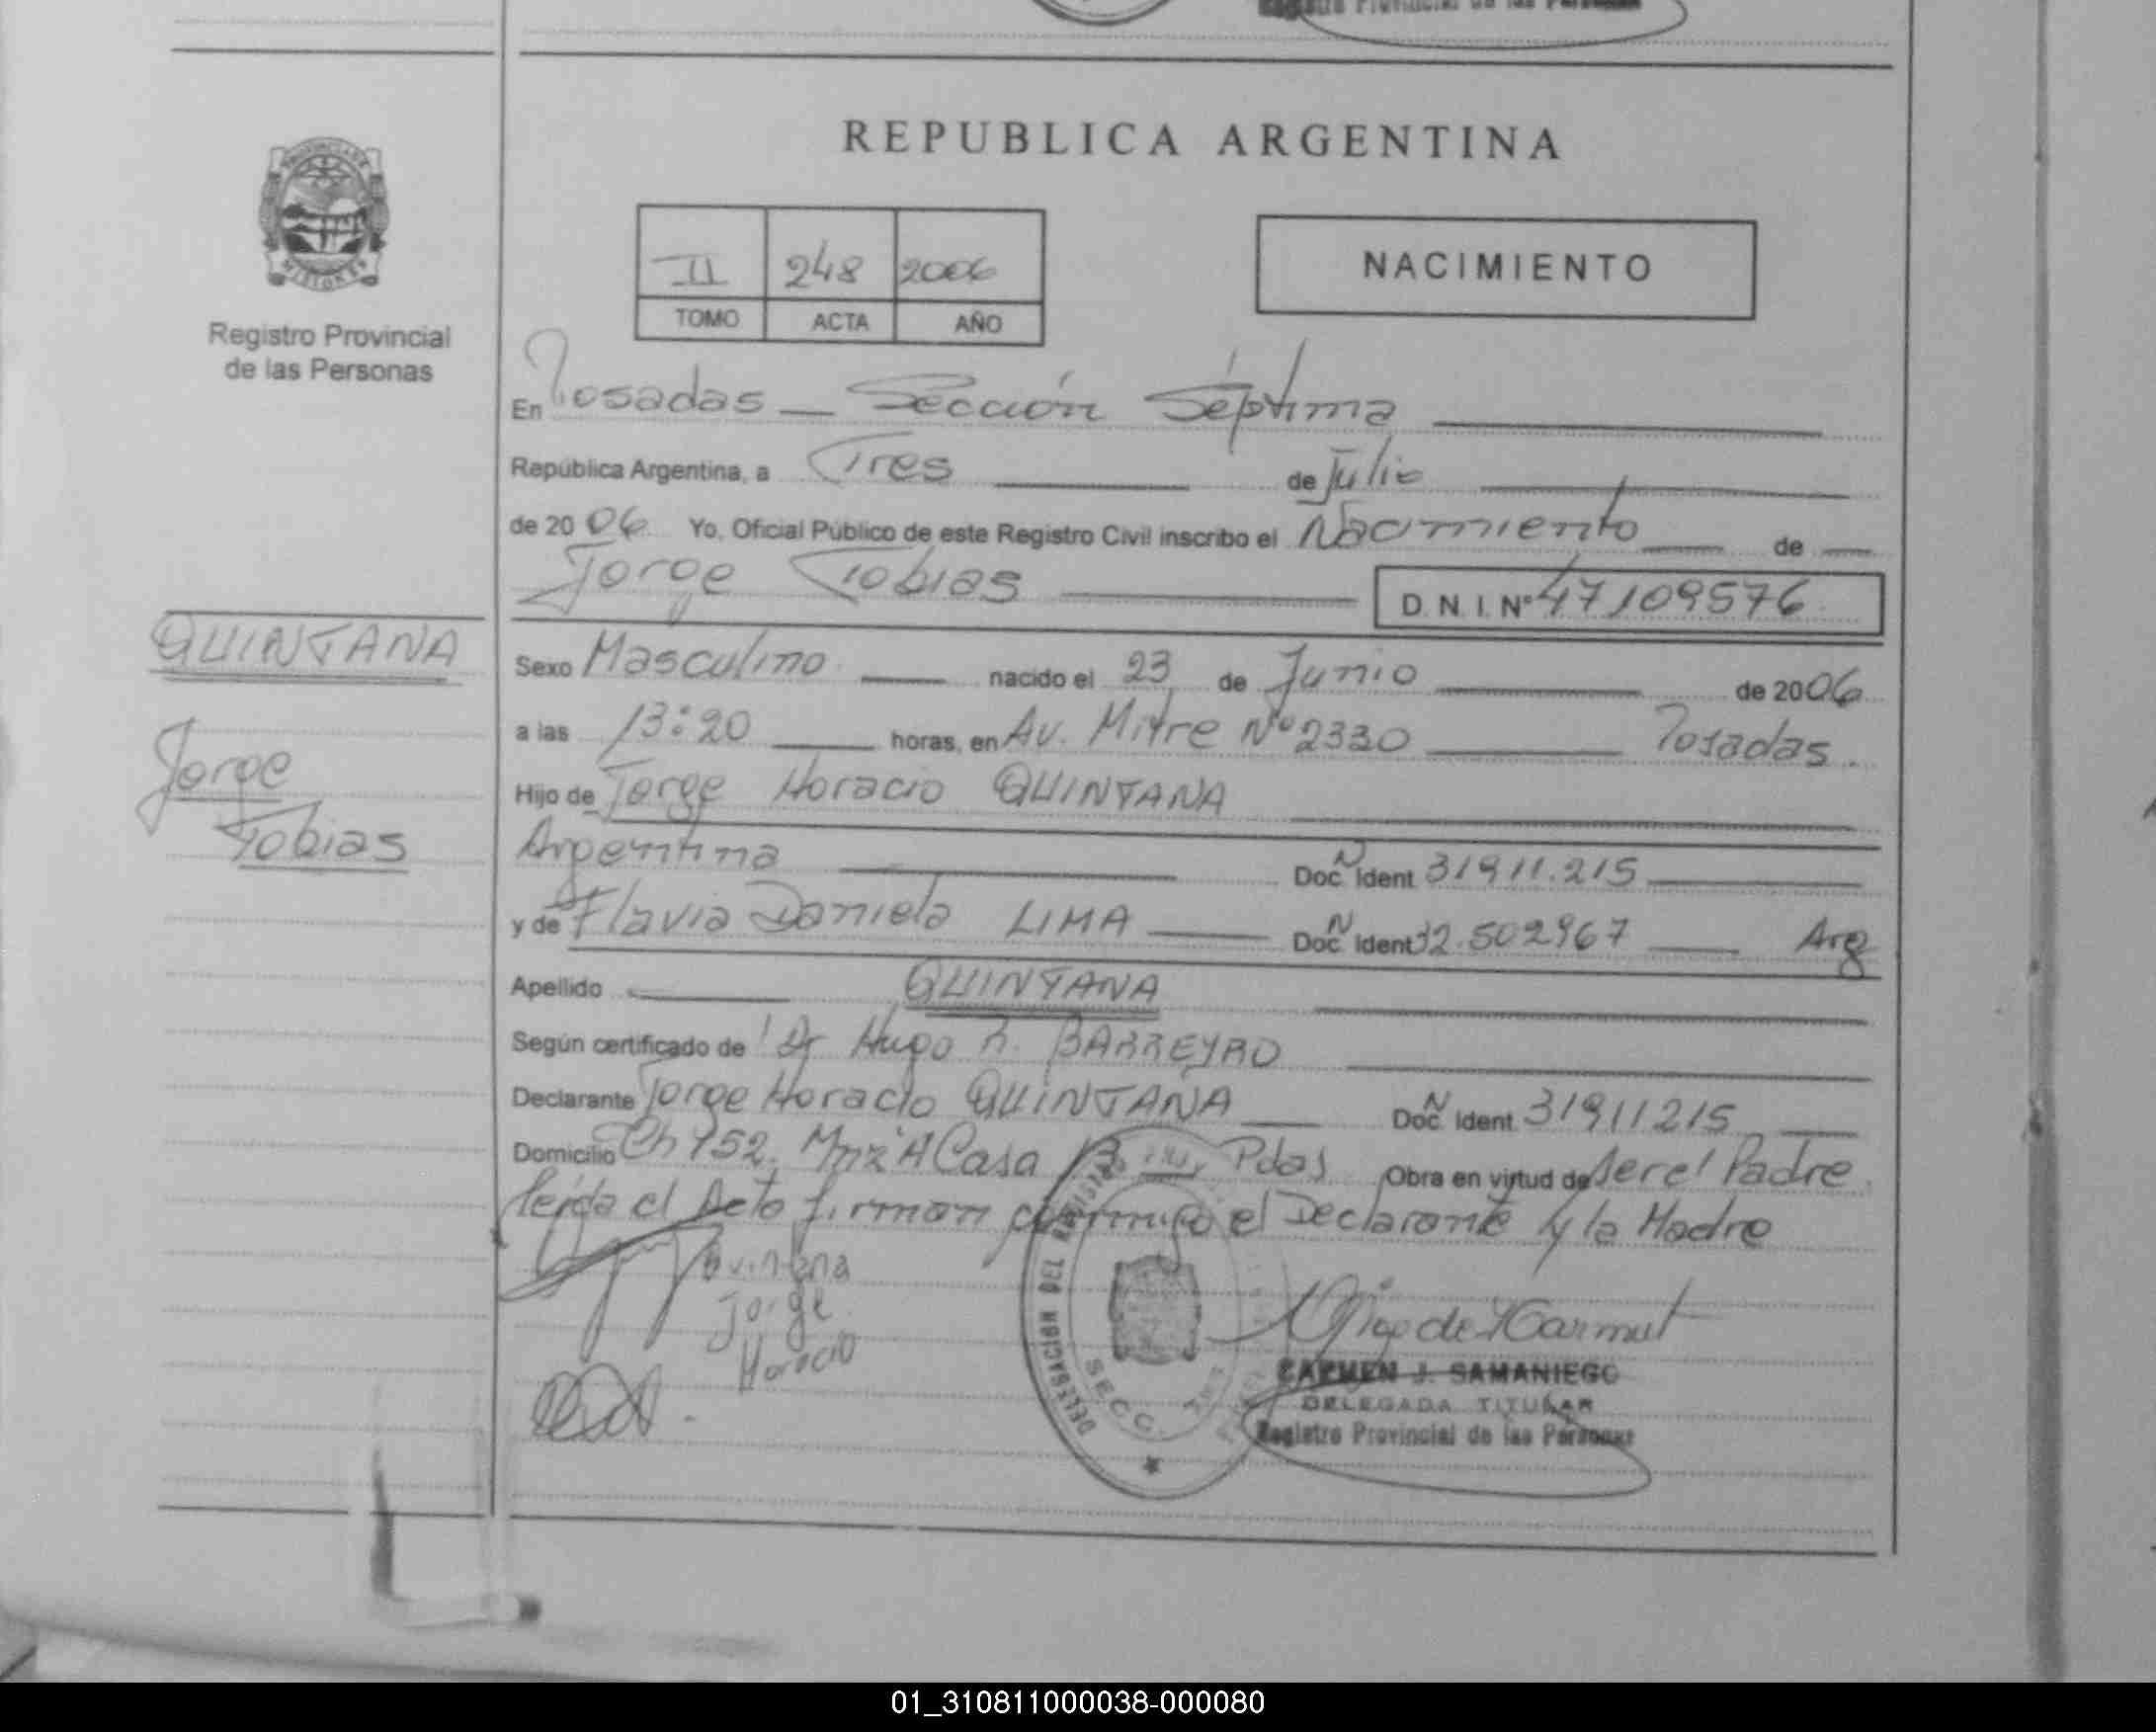 Registro Provincial de las Personas
REPUBLICA ARGENTINA
PROVINCIA DE
MISIONES
Registro Provincial
de las Personas
II 248 2006
TOMO ACTA AÑO
NACIMIENTO
En Posadas — Sección Séptima
República Argentina, a Tres de Julio
de 20 06 Yo, Oficial Público de este Registro Civil inscribo el Nacimiento de
Jorge Tobias D.N.I. Nº 47109576
QUINTANA
Jorge
Tobias
Sexo Masculino nacido el 23 de Junio de 2006
a las 13:20 horas, en Av. Mitre Nº 2330 Posadas.
Hijo de Jorge Horacio QUINTANA
Argentina Doc. N Ident 31911.215
y de Flavia Daniela LIMA Doc. N Ident 32.502967 Arg
Apellido QUINTANA
Según certificado de Dr Hugo R. BARREYRO
Declarante Jorge Horacio QUINTANA Doc. N Ident. 31911215
Domicilio Ch 152, Mnz A Casa Pdas Obra en virtud de ser el Padre
leída el Acta firman conmigo el Declarante y la Madre
Quintana
Jorge
Horacio
DELEGACION DEL
SECC.
CARMEN J. SAMANIEGO
DELEGADA TITULAR
Registro Provincial de las Personas
01_310811000038-000080